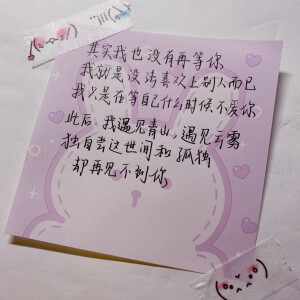 其实我也没有再等你
我就是没法喜欢上别人而已
我只是在等自己什么时候不爱你
此后、我遇见青山，遇见云雾
独自尝这世间和孤独
却再见不到你